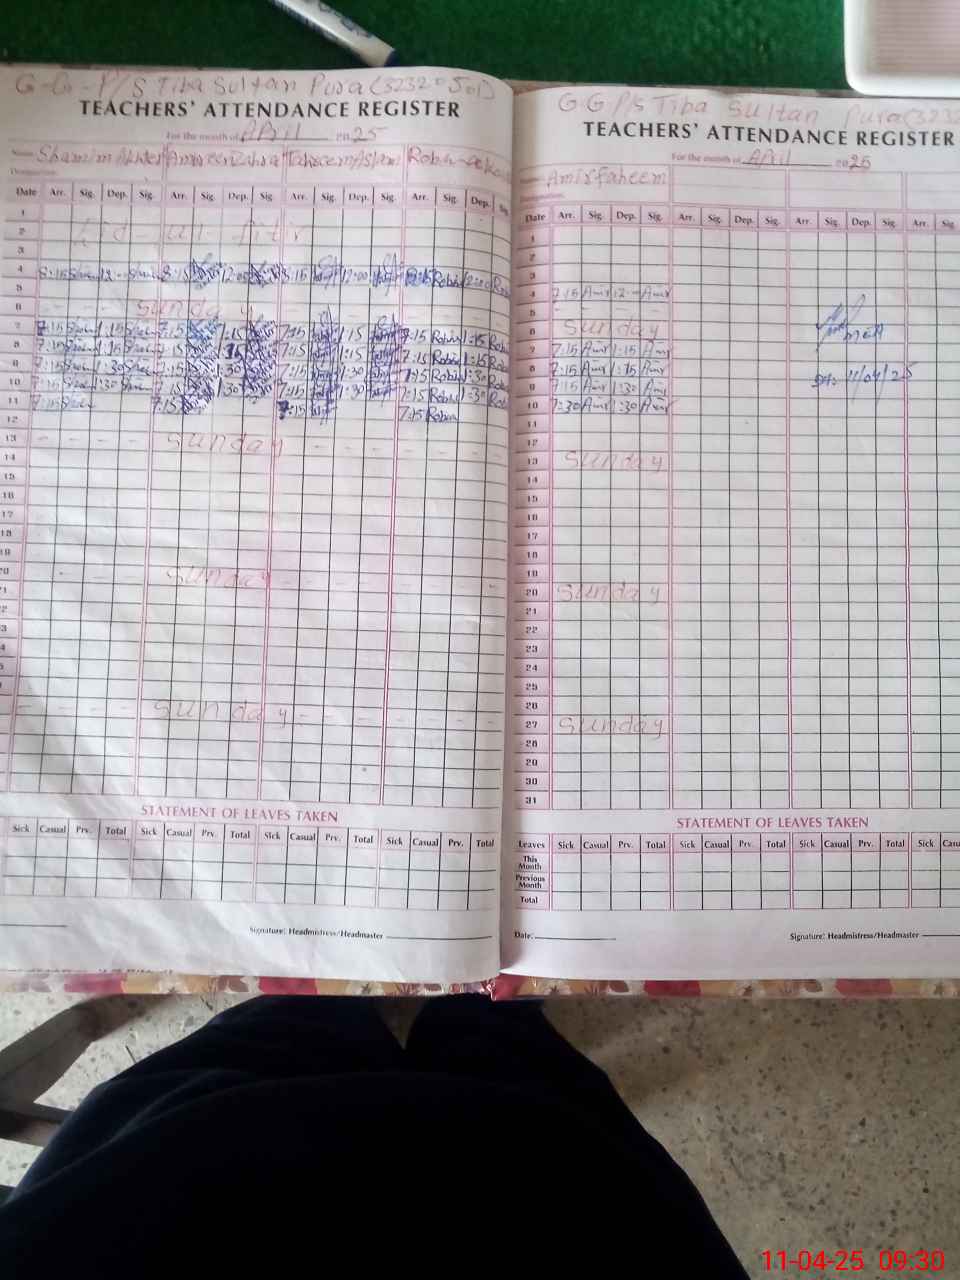 G-G-P/S Tiba Sultan Pura (32320501)
TEACHERS' ATTENDANCE REGISTER
For the month of APril 2025
Name Shamim Akhter Tehseem Aslam
Designation
Date Arr. Sig. Dep. Sig. Arr. Sig. Dep. Sig. Arr. Sig. Dep. Sig. Arr. Sig. Dep. Sig.
1
2 Eid-ul-fitr
3
4 8:15 12:- 8:15 12:05 8:15 12:00 8:15 Robin 12:00
5
6 Sunday
7 7:15 1:15 7:15 1:15 7:15 1:15 7:15 Robin 1:15
8 7:15 1:15 7:15 1:15 7:15 1:15 7:15 Robin 1:15
9 7:15 1:30 7:15 1:30 7:15 1:30 7:15 Robin 1:30
10 7:15 1:30 7:15 1:30 7:15 1:30 7:15 Robin 1:30
11 7:15 7:15 7:15 7:15 Robin
12
13 Sunday
14
15
16
17
18
19
20 Sunday
21
22
23
Sunday
STATEMENT OF LEAVES TAKEN
Sick Casual Prv. Total Sick Casual Prv. Total Sick Casual Prv. Total Sick Casual Prv. Total
Signature: Headmistress/Headmaster
G G P/S Tiba Sultan Pura (3232
TEACHERS' ATTENDANCE REGISTER
For the month of APril 2025
Name Amir faheem
Designation
Date Arr. Sig. Dep. Sig. Arr. Sig. Dep. Sig. Arr. Sig. Dep. Sig. Arr. Sig.
1
2
3
4 7:15 Amir 12:- Amir
5
6 Sunday
7 7:15 Amir 1:15 Amir
8 7:15 Amir 1:15 Amir
9 7:15 Amir 1:30 Amir
10 7:30 Amir 1:30 Amir
11/04/25
11
12
13 Sunday
14
15
16
17
18
19
20 Sunday
21
22
23
24
25
26
27 Sunday
28
29
30
31
STATEMENT OF LEAVES TAKEN
Leaves Sick Casual Prv. Total Sick Casual Prv. Total Sick Casual Prv. Total Sick
This Month
Previous Month
Total
Date:
Signature: Headmistress/Headmaster
11-04-25 09:30